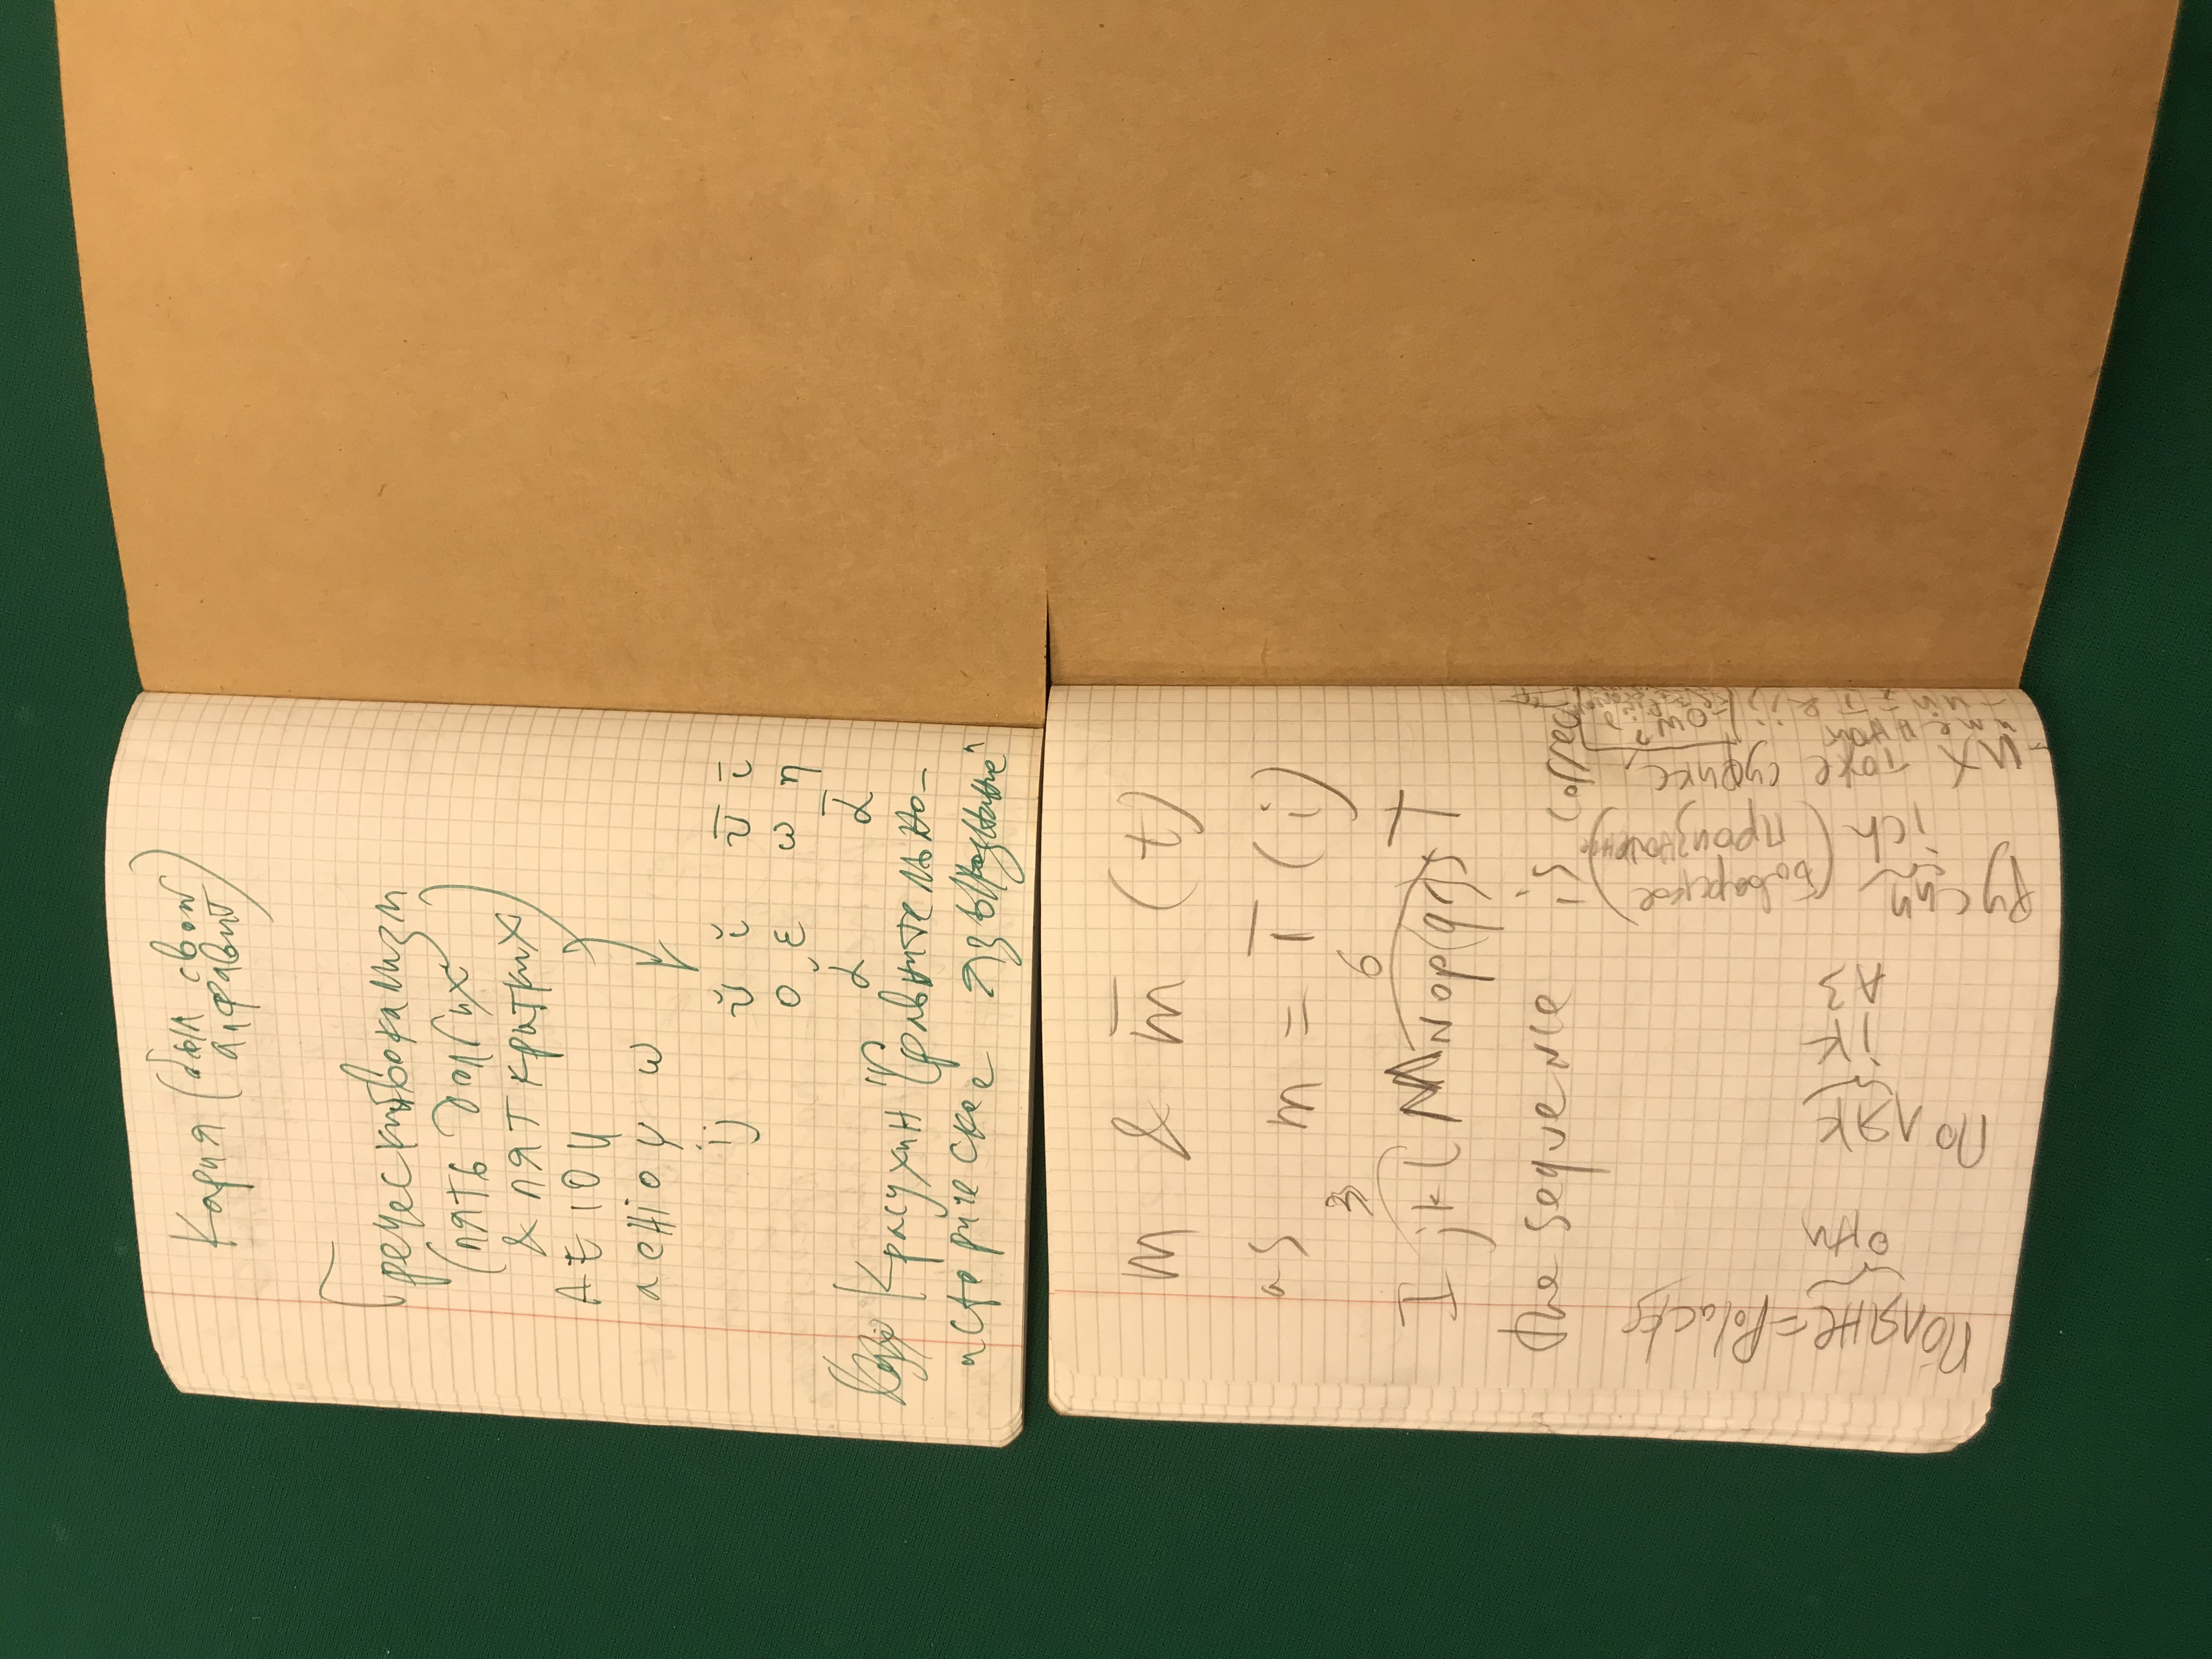 Кария (был свой
алфавит)
Греческий вокализм
(пять долгих
& пят кратких)
A E I O Y
a e H i o y ω
ij
ῠ ῐ ῡ ῑ
ο ε ω η
ᾰ ᾱ
Красухин "Сравнительно-
историческое языкознание"
m & m̅ (t)
as m = ī (i)
3 6
I jkl M Nop(qr)s T
the sequence is correct
Поляне = Polacks
они
По ляк
iк
Аз
Русин (баварское
ich произнание)
-их тоже суфикс,
именной